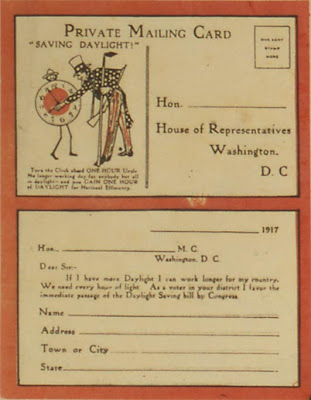 PRIVATE MAILING CARD
"SAVING DAYLIGHT!"
ONE CENT
STAMP
HERE
Hon.
House of Representatives
Washington.
D. C
Turn the Clock ahead ONE HOUR Uncle
No longer working day for anybody but all
in daylight - and you GAIN ONE HOUR
of DAYLIGHT for National Efficiency.
1917
Hon. M. C.
Washington, D. C
Dear Sir:-
If I have more Daylight I can work longer for my country.
We need every hour of light. As a voter in your district I favor the
immediate passage of the Daylight Saving bill by Congress.
Name
Address
Town or City
State